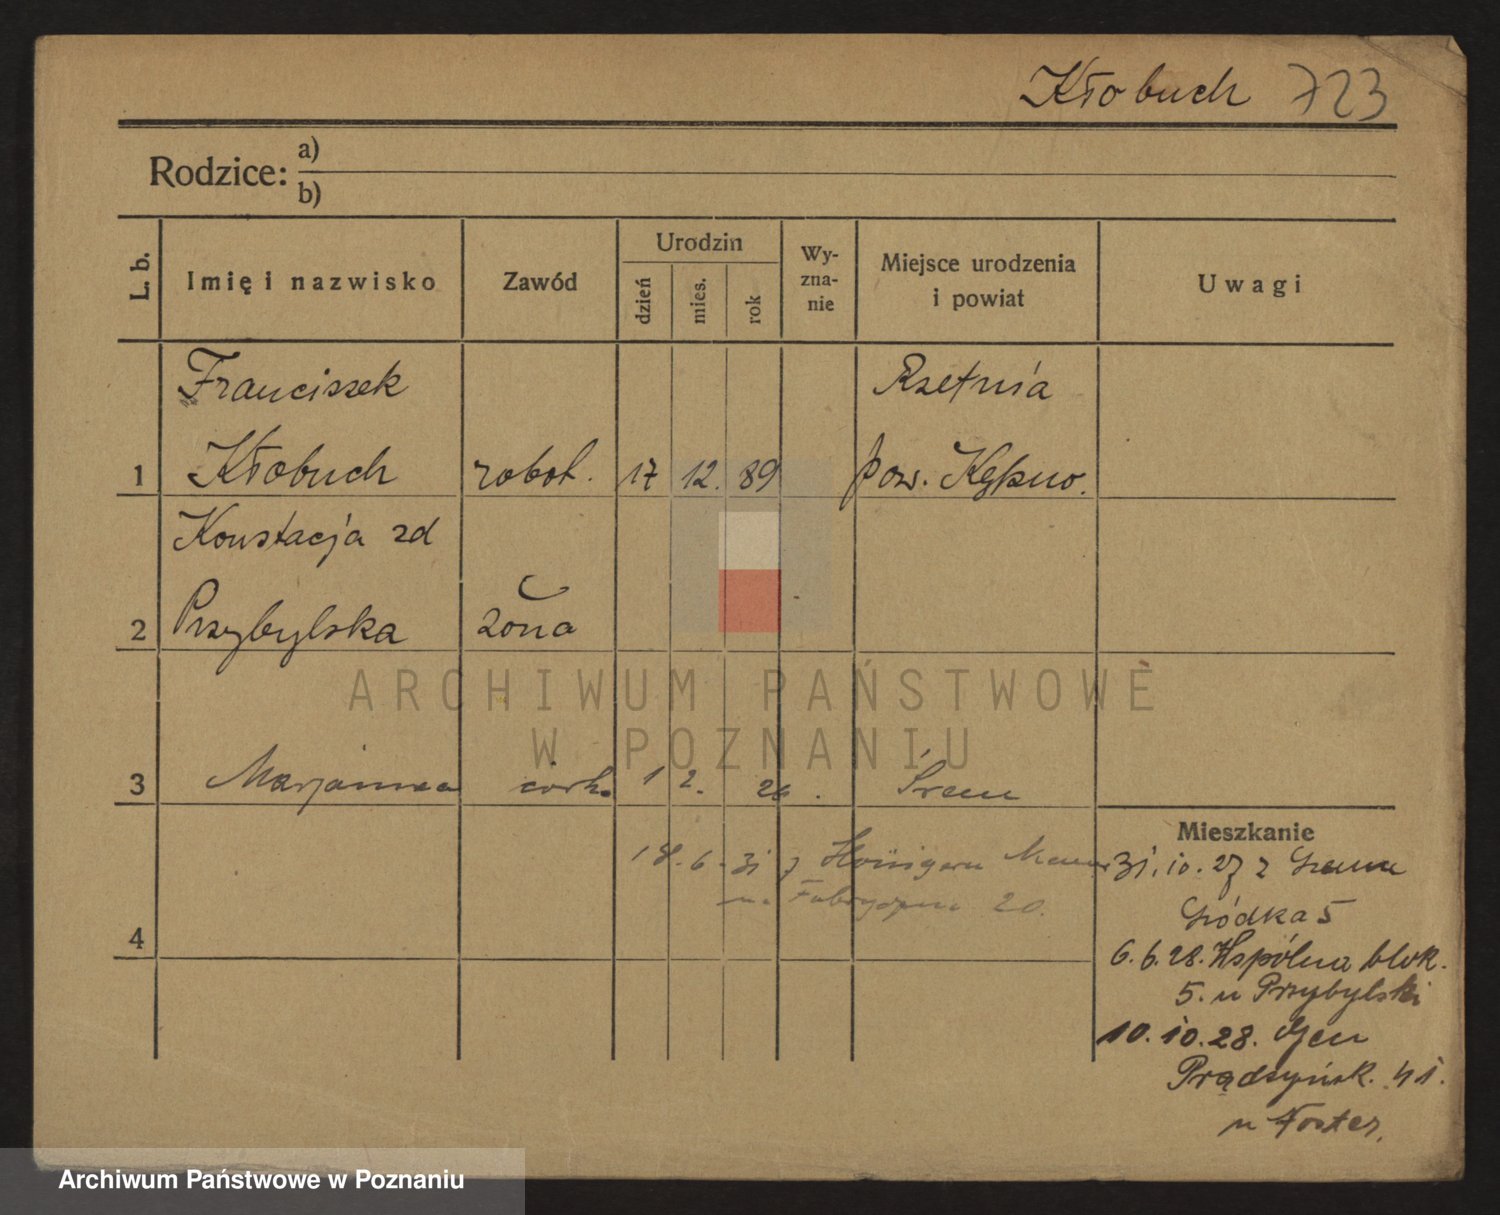 Kłobuch 723
Rodzice: a)
b)
L. b.
Imię i nazwisko
Zawód
Urodzin
dzień
mies.
rok
Wy-
zna-
nie
Miejsce urodzenia
i powiat
Uwagi
Franciszek
Rzetnia
1 Kłobuch robot. 17 12. 89 pow. Kępno.
Konstacja zd
2 Przybylska żona
ARCHIWUM PAŃSTWOWE
W POZNANIU
3 Marjanna córk. 1 2. 26. Śrem
Mieszkanie
18.-6-31 z
31.10.27 z Śremu
na Fabryczna 20.
Gródka 5
4
6.6.28. Wspólna blok.
5. u Przybylski
10.10.28. Gen
Prądzyńsk. 41.
u
Archiwum Państwowe w Poznaniu